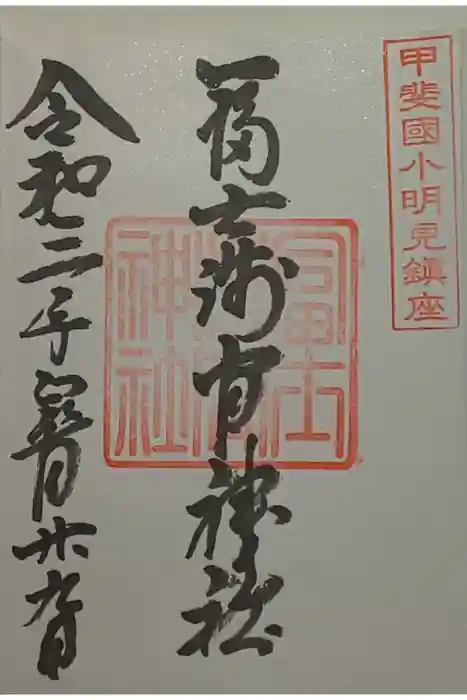 甲斐國小明見鎮座
冨士浅間神社
冨士
浅間
神社
令和二年月廿九日